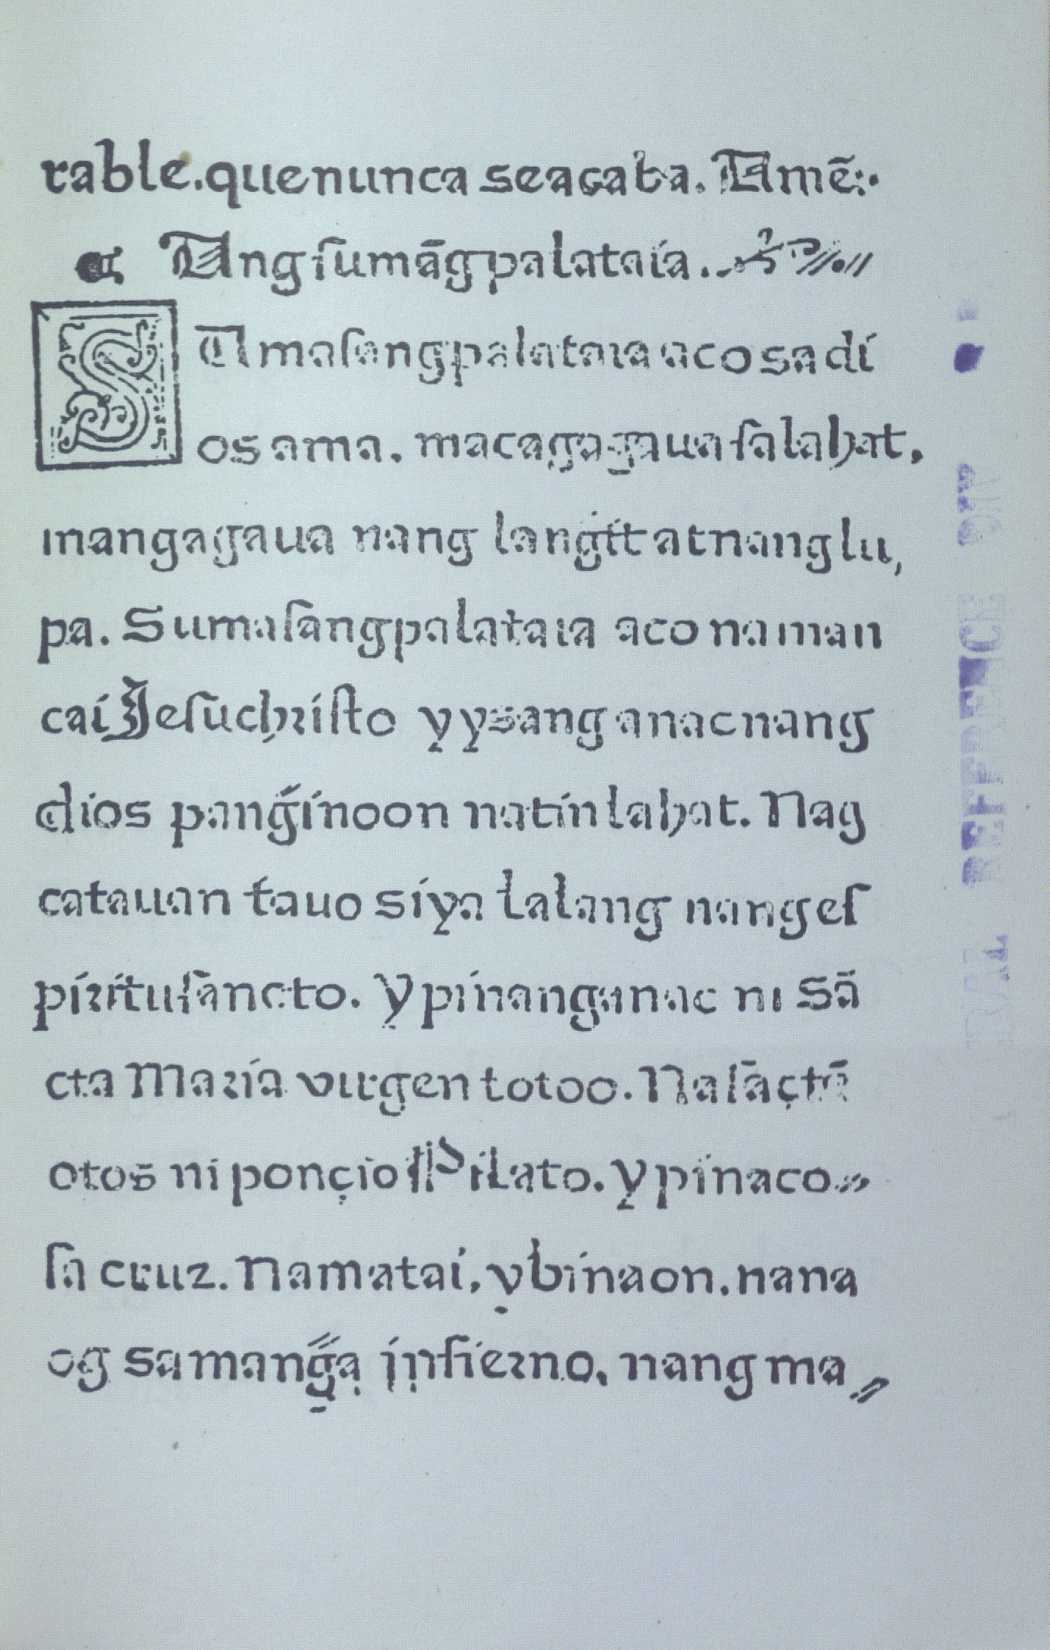 rable. que nunca seacaba. Amē.
Ang ſumāgpalataia.
S Vmaſangpalataia aco sa di
os ama. macagagaua ſa lahat,
mangagaua nang langit at nang lu,
pa. Sumaſangpalataia aco naman
cai Jeſuchriſto yysang anac nang
dios panğinoon natin lahat. Nag
catauan tauo siya lalang nang eſ
piritu ſancto. Ypinanganac ni Sā
cta Maria virgen totoo. Naſactā
otos ni ponçio Pilato. Ypinaco
ſa cruz. Namatai, ybinaon. nana
og sa manğa infierno, nang ma
REFERENCE ONLY